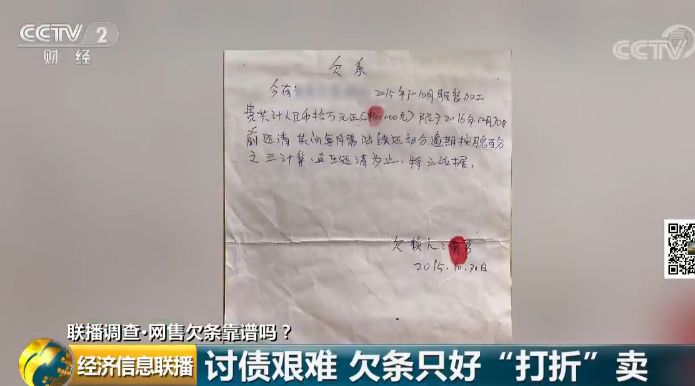 CCTV 2
财经
CCTV
欠条
今有 2015年1-10月服装加工
费共计人民币拾万元正(¥100000元)限于2016年12月30日
前还清 其间每月需陆续还部分逾期按月息百分
之三计算,直至还清为止,特立此据。
欠款人:
2015.10.30日
联播调查·网售欠条靠谱吗?
经济信息联播
讨债艰难 欠条只好“打折”卖